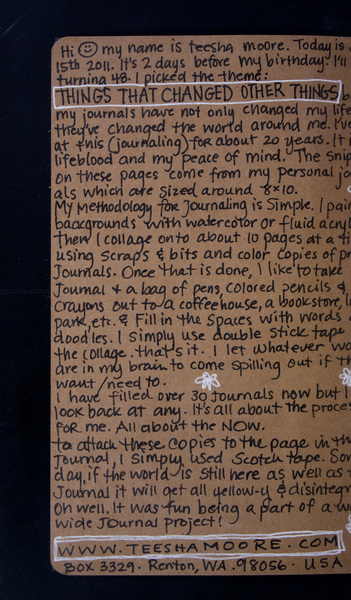 Hi my name is teesha moore. Today is
15th 2011. It's 2 days before my birthday. I'll
turning 48. I picked the theme:
THINGS THAT CHANGED OTHER THINGS
my journals have not only changed my life
they've changed the world around me. I've
at this (journaling) for about 20 years. It
lifeblood and my peace of mind. The snip
on these pages come from my personal jo
als which are sized around 8x10.
My methodology for journaling is simple. I pai
backgrounds with watercolor or fluid acryl
then I collage onto about 10 pages at a ti
using scraps & bits and color copies of pr
Journals. Once that is done, I like to take
Journal & a bag of pens, colored pencils &
crayons out to a coffeehouse, a bookstore, li
park, etc. & Fill in the spaces with words &
doodles. I simply use double stick tape
the collage. that's it. I let whatever wo
are in my brain to come spilling out if th
want/need to.
I have filled over 30 Journals now but I
look back at any. It's all about the proces
for me. All about the NOW.
to attach these copies to the page in th
Journal, I simply used Scotch tape. Som
day, if the world is still here as well as t
Journal it will get all yellow-y & disintegr
Oh well. It was fun being a part of a w
wide Journal project!
WWW.TEESHAMOORE.COM
BOX 3329 · Renton, WA. 98056 · USA